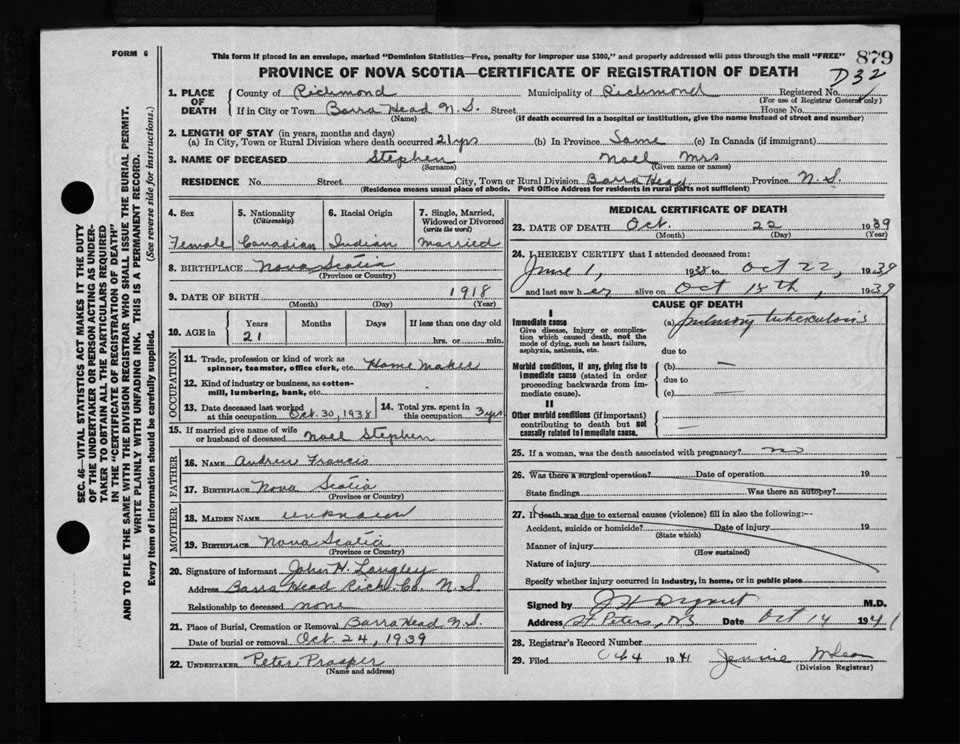 FORM 6
This form if placed in an envelope, marked "Dominion Statistics—Free, penalty for improper use $300," and properly addressed will pass through the mail "FREE"
879
PROVINCE OF NOVA SCOTIA—CERTIFICATE OF REGISTRATION OF DEATH
D32
1. PLACE OF DEATH
County of Richmond Municipality of Richmond Registered No.
(For use of Registrar General only)
If in City or Town Barra Head N.S. Street House No.
(Name) (If death occurred in a hospital or institution, give the name instead of street and number)
2. LENGTH OF STAY (in years, months and days)
(a) In City, Town or Rural Division where death occurred 21 yrs (b) In Province Same (c) In Canada (if immigrant)
3. NAME OF DECEASED Stephen Noel Mrs
(Surname) (Given name or names)
RESIDENCE No. Street City, Town or Rural Division Barra Head Province N.S.
(Residence means usual place of abode. Post Office Address for residents in rural parts not sufficient)
4. Sex
Female
5. Nationality
(Citizenship)
Canadian
6. Racial Origin
Indian
7. Single, Married, Widowed or Divorced
(write the word)
Married
8. BIRTHPLACE Nova Scotia
(Province or Country)
9. DATE OF BIRTH 1918
(Month) (Day) (Year)
10. AGE in
Years Months Days If less than one day old
21 hrs. or min.
OCCUPATION
11. Trade, profession or kind of work as
spinner, teamster, office clerk, etc. Home Maker
12. Kind of industry or business, as cotton-
mill, lumbering, bank, etc.
13. Date deceased last worked
at this occupation Oct. 30, 1938
14. Total yrs. spent in
this occupation 3 yrs
15. If married give name of wife
or husband of deceased Noel Stephen
FATHER
16. NAME Andrew Francis
17. BIRTHPLACE Nova Scotia
(Province or Country)
MOTHER
18. MAIDEN NAME unknown
19. BIRTHPLACE Nova Scotia
(Province or Country)
20. Signature of informant John H. Langley
Address Barra Head Rich. Co. N.S
Relationship to deceased none
21. Place of Burial, Cremation or Removal Barra Head N.S.
Date of burial or removal Oct. 24, 1939
22. UNDERTAKER Peter Prosper
(Name and address)
MEDICAL CERTIFICATE OF DEATH
23. DATE OF DEATH Oct. 22 1939
(Month) (Day) (Year)
24. I HEREBY CERTIFY that I attended deceased from:
June 1, 1938 to Oct 22, 1939
and last saw her alive on Oct 18th, 1939
CAUSE OF DEATH
I
Immediate cause
Give disease, injury or complica-
tion which caused death, not the
mode of dying, such as heart failure,
asphyxia, asthenia, etc.
(a) pulmonary tuberculosis
due to
Morbid conditions, if any, giving rise to
immediate cause (stated in order
proceeding backwards from im-
mediate cause).
(b) —
due to
(c) —
II
Other morbid conditions (if important)
contributing to death but not
causally related to immediate cause.
—
25. If a woman, was the death associated with pregnancy? no
26. Was there a surgical operation? Date of operation 19
State findings Was there an autopsy?
27. If death was due to external causes (violence) fill in also the following:—
Accident, suicide or homicide? Date of injury 19
(State which)
Manner of injury
(How sustained)
Nature of injury
Specify whether injury occurred in industry, in home, or in public place
Signed by M.D.
Address St Peters, NS Date Oct 14 1941
28. Registrar's Record Number
29. Filed 1941 Jennie McLean
(Division Registrar)
SEC. 46—VITAL STATISTICS ACT MAKES IT THE DUTY
OF THE UNDERTAKER OR PERSON ACTING AS UNDER-
TAKER TO OBTAIN ALL THE PARTICULARS REQUIRED
IN THE "CERTIFICATE OF REGISTRATION OF DEATH"
AND TO FILE THE SAME WITH THE DIVISION REGISTRAR WHO SHALL ISSUE THE BURIAL PERMIT.
WRITE PLAINLY WITH UNFADING INK. THIS IS A PERMANENT RECORD.
Every item of information should be carefully supplied. (See reverse side for instructions.)